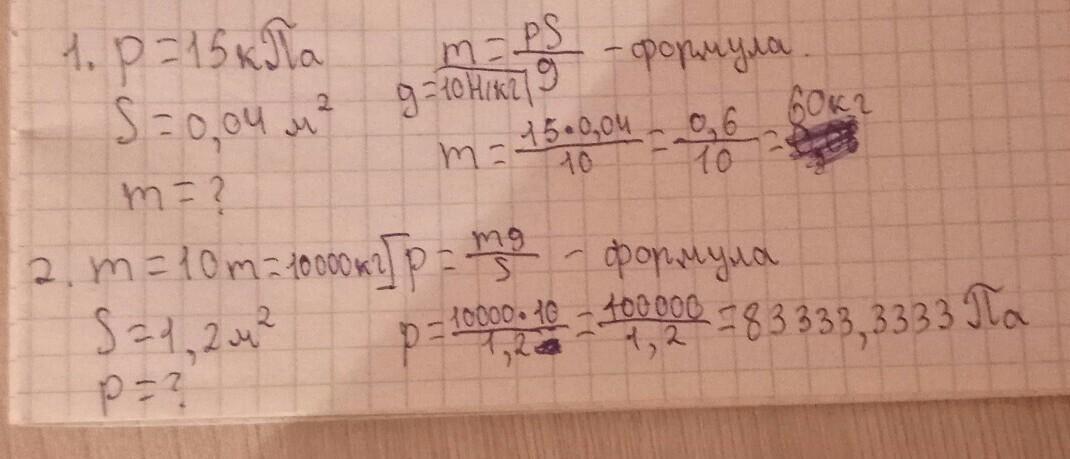 1. p = 15 кПа
S = 0,04 м²
m = ?
m = pS/g – формула.
g = 10Н/кг
m = 15•0,04/10 = 0,6/10 = 60кг
2. m = 10т = 10000кг
S = 1,2м²
p = ?
p = mg/S – формула
p = 10000•10/1,2 = 100000/1,2 = 83333,3333 Па